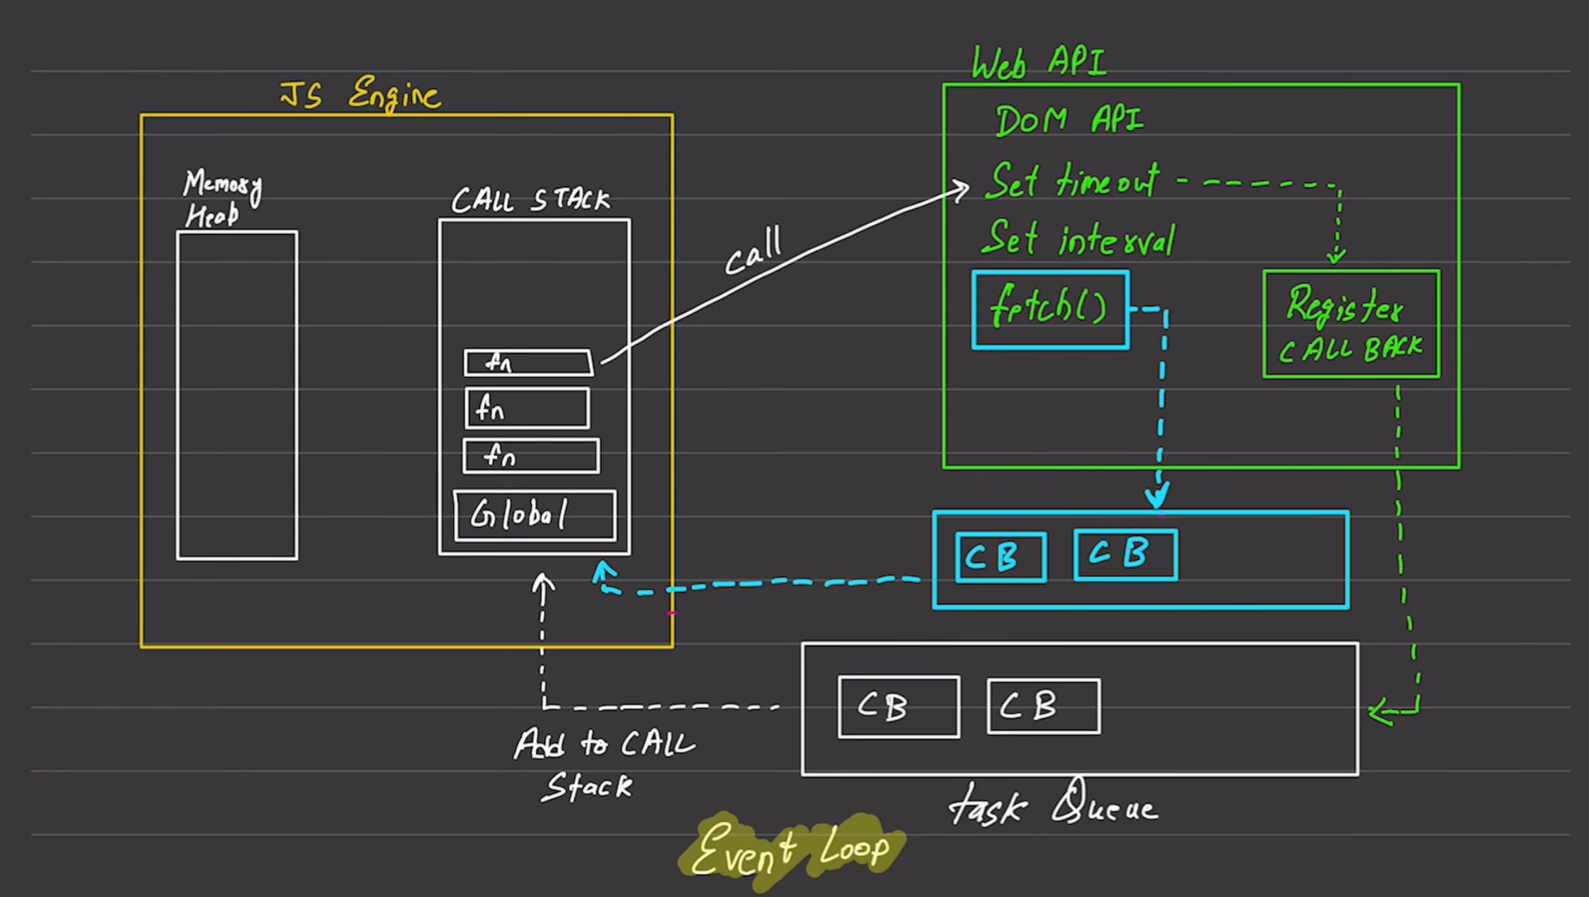 JS Engine
Memory
Heap
CALL STACK
fn
fn
fn
Global
call
Web API
DOM API
Set timeout
Set interval
fetch()
Register
CALL BACK
CB CB
CB CB
task Queue
Add to CALL
Stack
Event Loop